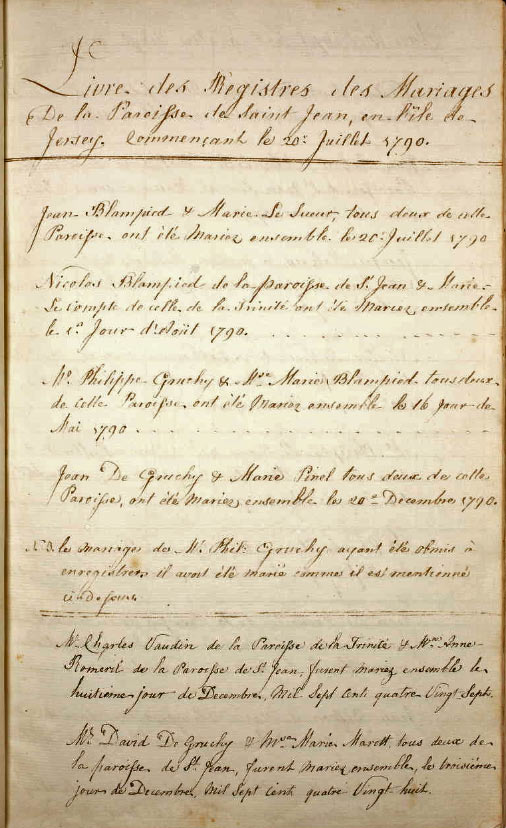 Livre des Registres des Mariages
De la Paroisse de Saint Jean, en l'ile de
Jersey. Commençant le 20e Juillet 1790.
Jean Blampied & Marie Le Sueur, tous deux de cette
Paroisse ont été Mariez ensemble le 20e Juillet 1790
Nicolas Blampied de la paroisse de St Jean & Marie
Le Compte de celle de la Trinité ont été Mariez ensemble
le 1r Jour d'Août 1790.
Mr Philippe Gruchy & Mse Marie Blampied tous deux
de cette Paroisse ont été Mariez ensemble le 16 Jour de
Mai 1790
Jean De Gruchy & Marie Pinel tous deux de cette
Paroisse, ont été Mariez ensemble le 20e Decembre 1790.
N.B. le mariage de Mr Phil: Gruchy ayant été obmis à
enregistrer il avoit été marié comme il est mentionné
ci-Dessus
Mr Charles Vaudin de la Paroisse de la Trinité & Mse Anne
Romeril de la Paroisse de St Jean, furent mariez ensemble le
huitième jour de Decembre, Mil Sept Cent quatre Vingt Sept.
Mr David De Gruchy & Mse Marie Marett, tous deux de
la paroisse de St Jean, furent mariez ensemble, le troisième
jour de Decembre, Mil Sept Cent quatre Vingt huit.